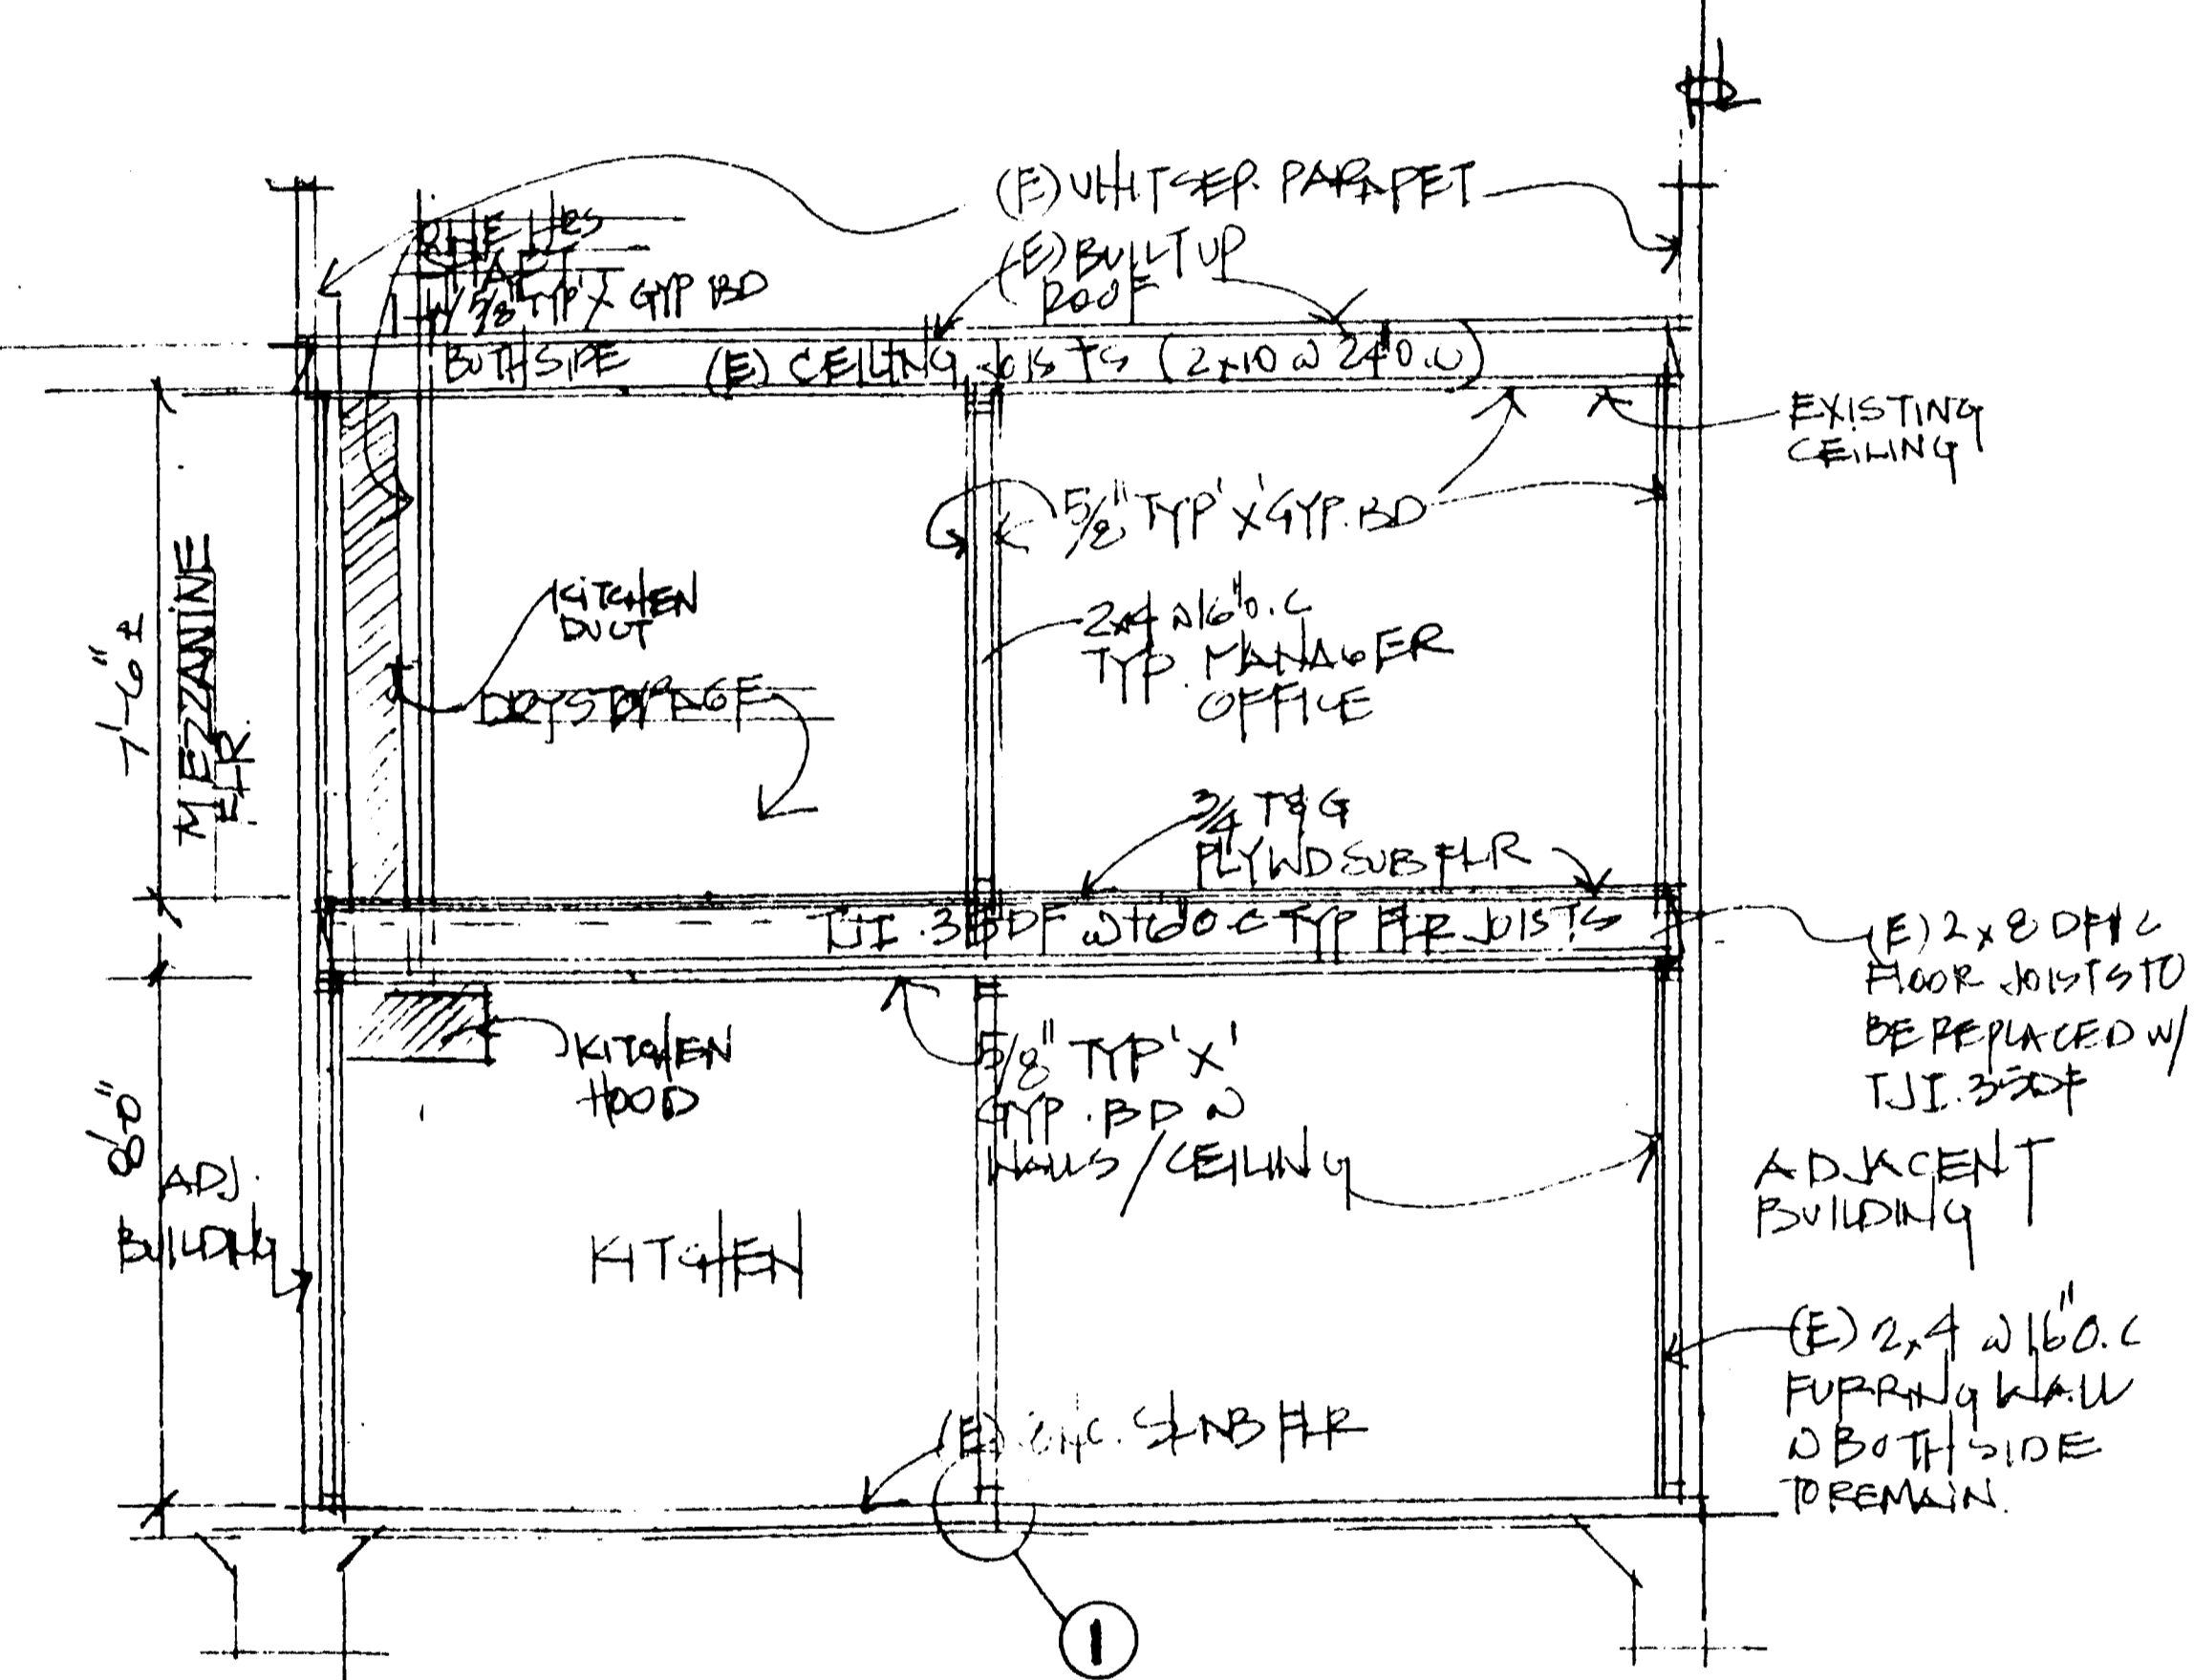 (E) UNIT SEP. PARAPET
(E) BUILT UP
ROOF
ONE HR
SHAFT
W/ 5/8 TYP 'X' GYP BD
BOTH SIDE
(E) CEILING JOISTS (2x10 @ 24 O.C)
EXISTING
CEILING
5/8" TYP 'X' GYP. BD
KITCHEN
DUCT
DRY STORAGE
2x4 @ 16" O.C
TYP. MANAGER
OFFICE
7'-6" ±
MEZZANINE
FLR.
3/4 T&G
PLYWD SUB FLR
TJI .35DF @ 16" O.C TYP FLR JOISTS
(E) 2x8 DF
FLOOR JOISTS TO
BE REPLACED W/
TJI .35DF
KITCHEN
HOOD
5/8" TYP 'X'
GYP. BD @
WALLS/CEILING
8'-0"
ADJ.
BUILDING
KITCHEN
ADJACENT
BUILDING
(E) 2x4 @ 16" O.C
FURRING WALL
@ BOTH SIDE
TO REMAIN.
(E) CONC. SLAB FLR
1